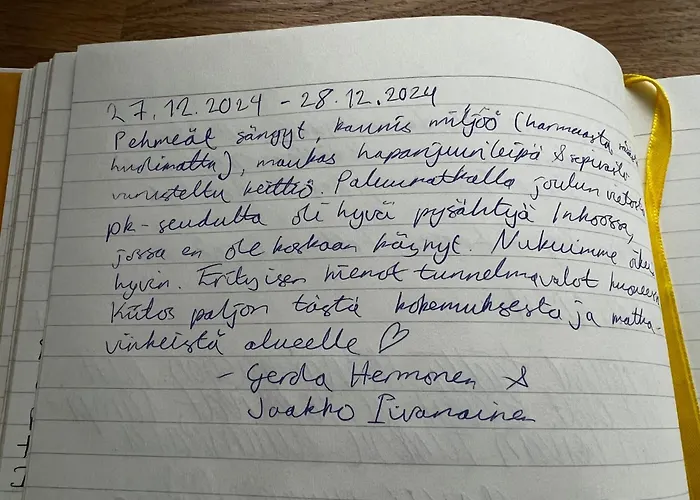 27.12.2024 - 28.12.2024
Pehmeät sängyt, kaunis miljöö (harmaasta
huolimatta), maukas hapanjuurileipä &
varusteltu keittiö. Paluumatkalla joulun vietosta
pk-seudulta oli hyvä pysähtyä Inkoossa,
jossa en ole koskaan käynyt. Nukuimme oikein
hyvin. Erityisen hienot tunnelmavalot huoneessa
Kiitos paljon tästä kokemuksesta ja matka-
vinkeistä alueelle ♡
- Gerda Hermonen &
Jaakko Iivanainen